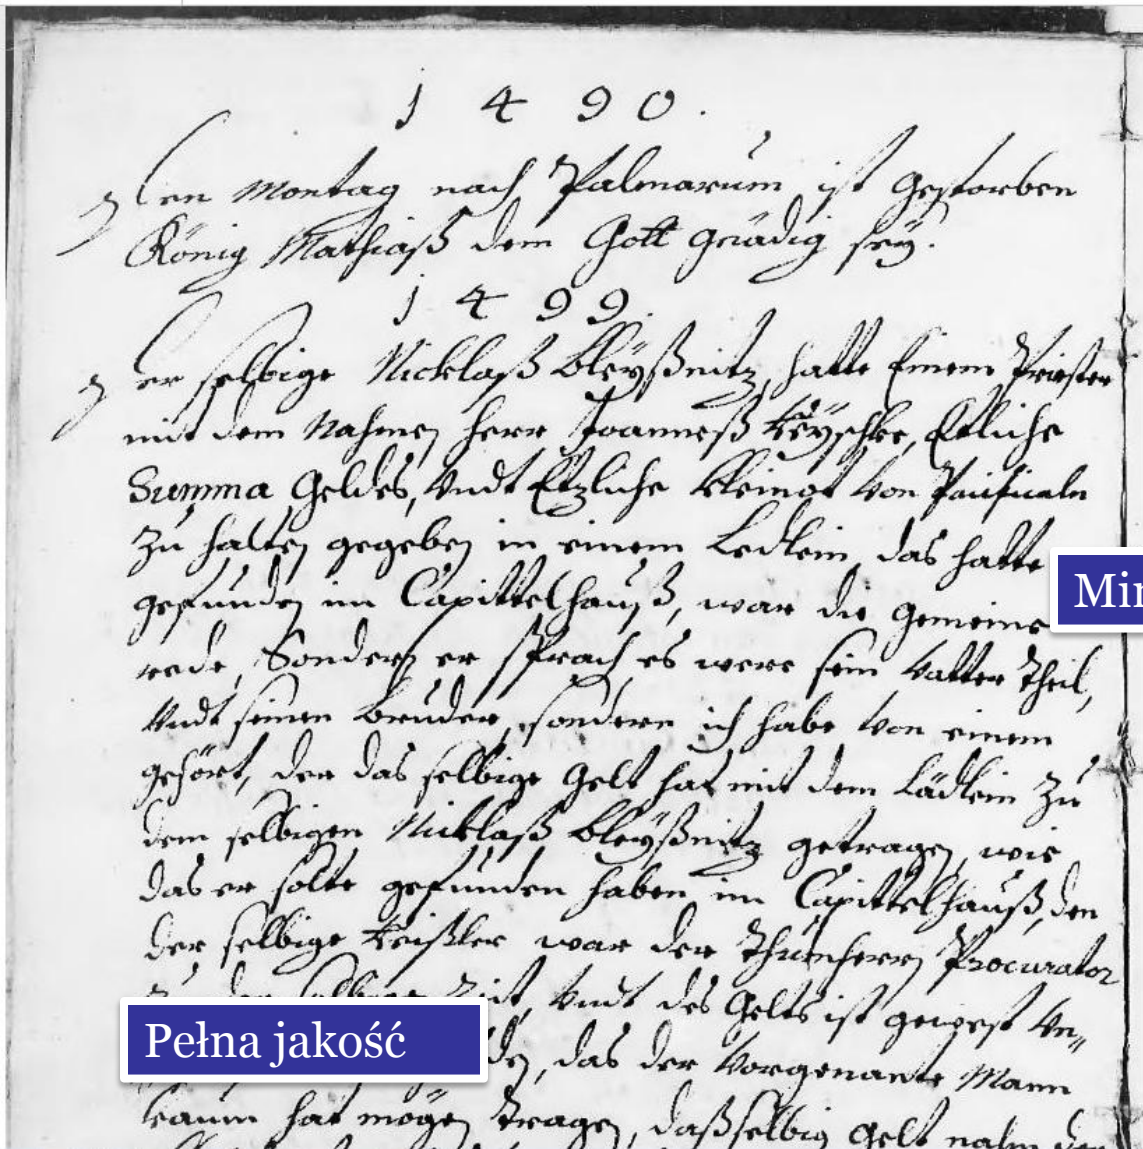 1 4 9 0.
Den Montag nach Palmarum ist gestorben
König Mathiaß dem Gott gnädig seÿ.
1 4 9 9.
Der selbige Nicklaß Bleÿßnitz, hatte Einem Priester
mit dem Nahmen Herr Joanneß, Etliche
Summa Geldes, Vndt Etzliche Kleinot von
zu halten gegeben in einem Ledlein, das hatte
gefunden im Capittelhauß, war die gemeine
Min
rede, Sondern er sprach es were sein Vatter theil,
Vndt seinen Bruder, sondern ich habe von einem
gehört, der das selbige Gelt hat mit dem Lädlein zu
dem selbigen Nicklaß Bleÿßnitz getragen, wie
das er solte gefunden haben im Capittelhauß, den
der selbige war der Thumherrn Procurator
Zeit, Vndt des Gelts ist gewest Vn„
Pełna jakość
das der Vorgenante Mann
kaum hat mögen tragen, daßselbig Gelt nahm der